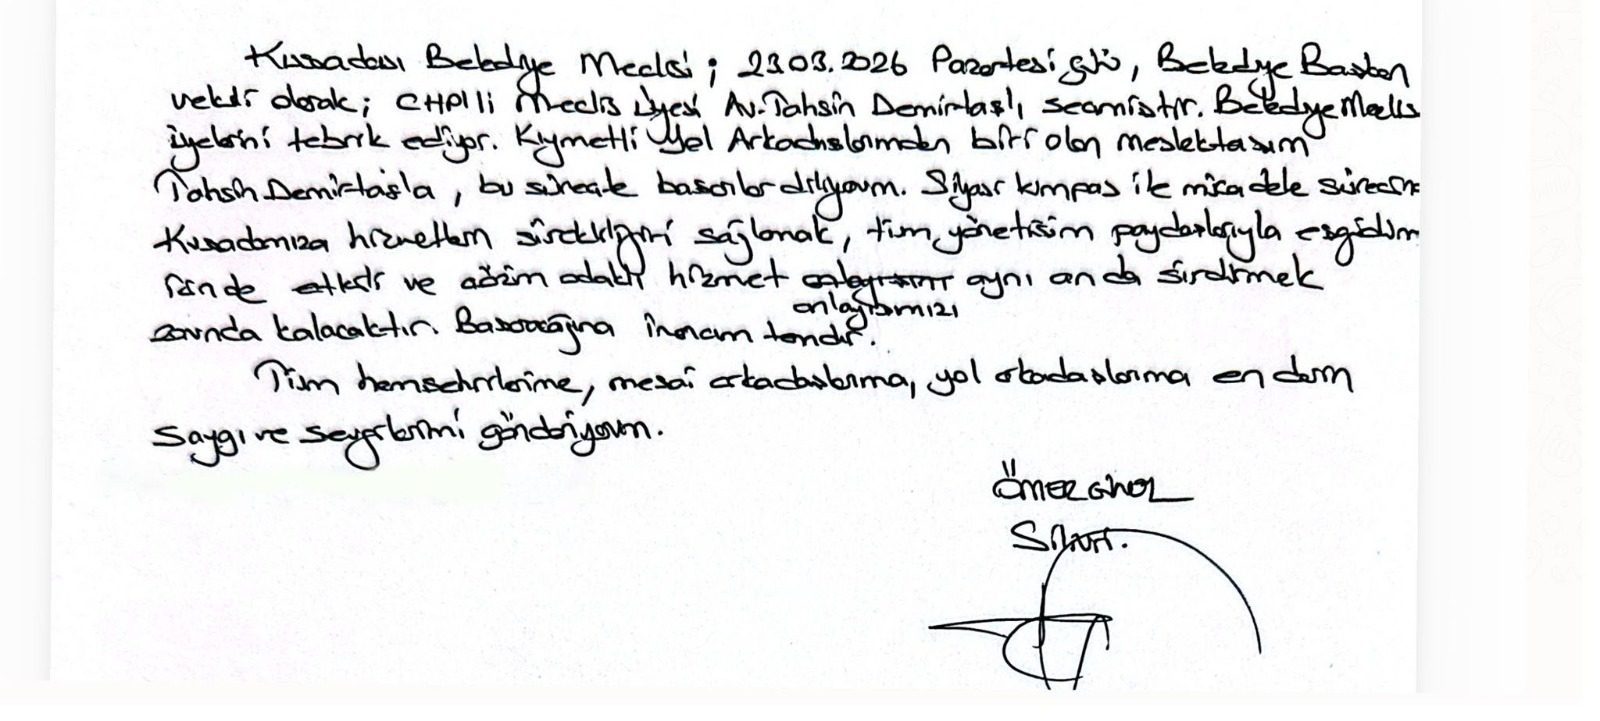 Kuşadası Belediye Meclisi; 23.03.2026 Pazartesi günü, Belediye Başkan
vekili olarak; CHP'li Meclis üyesi Av. Tahsin Demirtaş'ı seçmiştir. Belediye Meclis
üyelerini tebrik ediyor. Kıymetli Yol Arkadaşlarımdan biri olan meslektaşım
Tahsin Demirtaş'a, bu süreçte başarılar diliyorum. Siyasi kumpas ile mücadele sürecin
Kuşadamıza hizmetlerin sürekliliğini sağlamak, tüm yönetişim paydaşlarıyla eşgüdüm
içinde etkili ve çözüm odaklı hizmet aynı anda sürdürmek
anlayışımızı
zorunda kalacaktır. Başaracağına inancım tamdır.
Tüm hemşehrilerime, mesai arkadaşlarıma, yol arkadaşlarıma en derin
saygı ve sevgilerimi gönderiyorum.
ÖMER GÜNEL
Silivri.